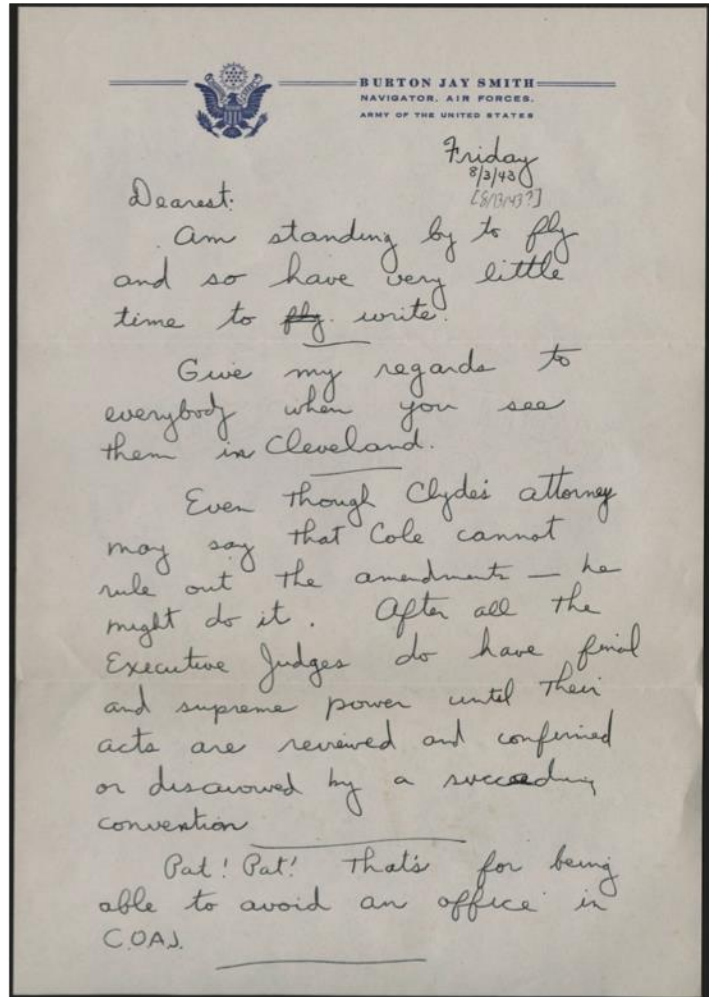 BURTON JAY SMITH
NAVIGATOR, AIR FORCES.
ARMY OF THE UNITED STATES
Friday
8/3/43
[8/13/43?]
Dearest:
Am standing by to fly
and so have very little
time to fly. write.
Give my regards to
everybody when you see
them in Cleveland.
Even though Clyde's attorney
may say that Cole cannot
rule out the amendments — he
might do it. After all the
Executive Judges do have final
and supreme power until their
acts are reviewed and confirmed
or disavowed by a succeeding
convention
Pat! Pat! That's for being
able to avoid an office in
C.OAJ.